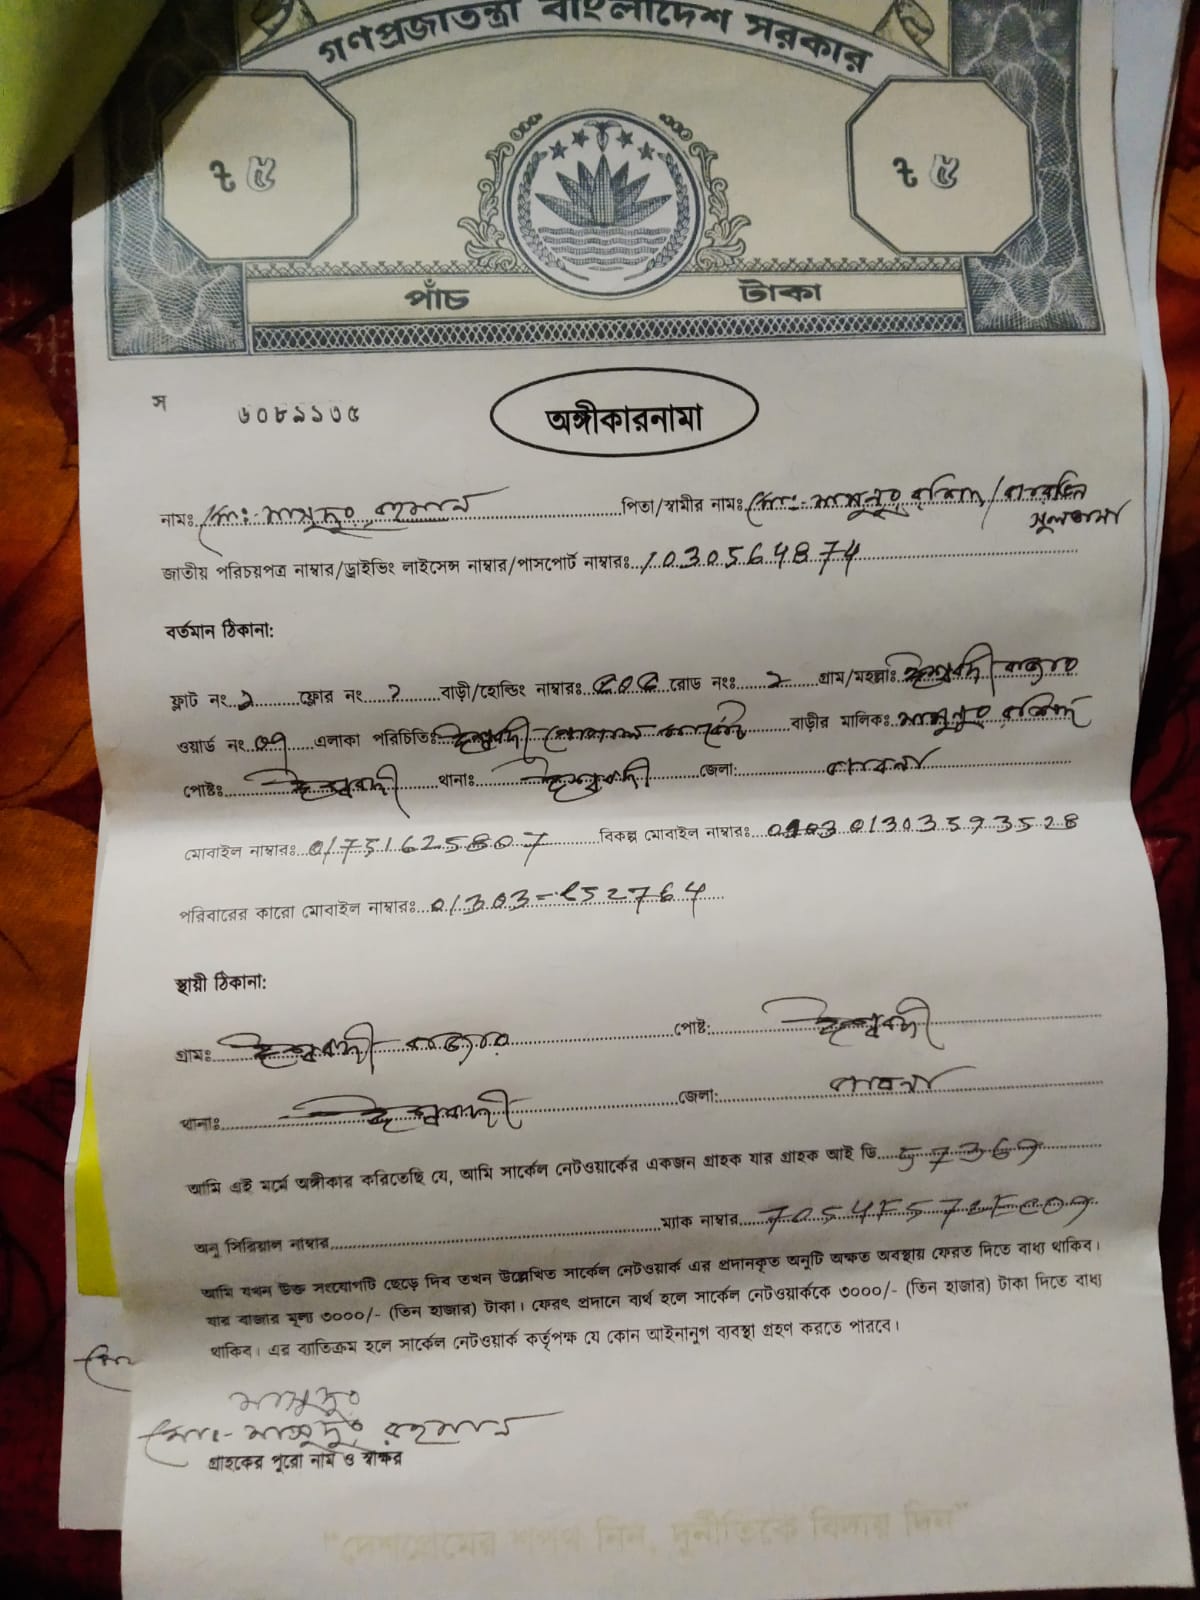 গণপ্রজাতন্ত্রী বাংলাদেশ সরকার
৳ ৫ ৳ ৫
পাঁচ টাকা
স ৬০৮৯১৩৫ অঙ্গীকারনামা
নামঃ মোঃ- মাসুদুর রহমান পিতা/স্বামীর নামঃ মোঃ- মামুনুর রশিদ/ পারভিন
সুলতানা
জাতীয় পরিচয়পত্র নাম্বার/ড্রাইভিং লাইসেন্স নাম্বার/পাসপোর্ট নাম্বারঃ 1030564874
বর্তমান ঠিকানা:
ফ্লাট নং ২ ফ্লোর নং ২ বাড়ী/হোল্ডিং নাম্বারঃ রোড নংঃ ২ গ্রাম/মহল্লাঃ ঈশ্বরদী বাজার
ওয়ার্ড নং এলাকা পরিচিতিঃ ঈশ্বরদী বাড়ীর মালিকঃ মামুনুর রশিদ
পোষ্টঃ ঈশ্বরদী থানাঃ ঈশ্বরদী জেলা: পাবনা
মোবাইল নাম্বারঃ 01751625807 বিকল্প মোবাইল নাম্বারঃ 01303593528
পরিবারের কারো মোবাইল নাম্বারঃ
স্থায়ী ঠিকানা:
গ্রামঃ ঈশ্বরদী বাজার পোষ্ট: ঈশ্বরদী
থানাঃ ঈশ্বরদী জেলা: পাবনা
আমি এই মর্মে অঙ্গীকার করিতেছি যে, আমি সার্কেল নেটওয়ার্কের একজন গ্রাহক যার গ্রাহক আই ডি
অনু সিরিয়াল নাম্বার ম্যাক নাম্বার
আমি যখন উক্ত সংযোগটি ছেড়ে দিব তখন উল্লেখিত সার্কেল নেটওয়ার্ক এর প্রদানকৃত অনুটি অক্ষত অবস্থায় ফেরত দিতে বাধ্য থাকিব।
যার বাজার মূল্য ৩০০০/- (তিন হাজার) টাকা। ফেরৎ প্রদানে ব্যর্থ হলে সার্কেল নেটওয়ার্ককে ৩০০০/- (তিন হাজার) টাকা দিতে বাধ্য
থাকিব। এর ব্যাতিক্রম হলে সার্কেল নেটওয়ার্ক কর্তৃপক্ষ যে কোন আইনানুগ ব্যবস্থা গ্রহণ করতে পারবে।
মাসুদুর
মোঃ- মাসুদুর রহমান
গ্রাহকের পুরো নাম ও স্বাক্ষর
"দেশপ্রেমের শপথ নিন, দুর্নীতিকে বিদায় দিন"